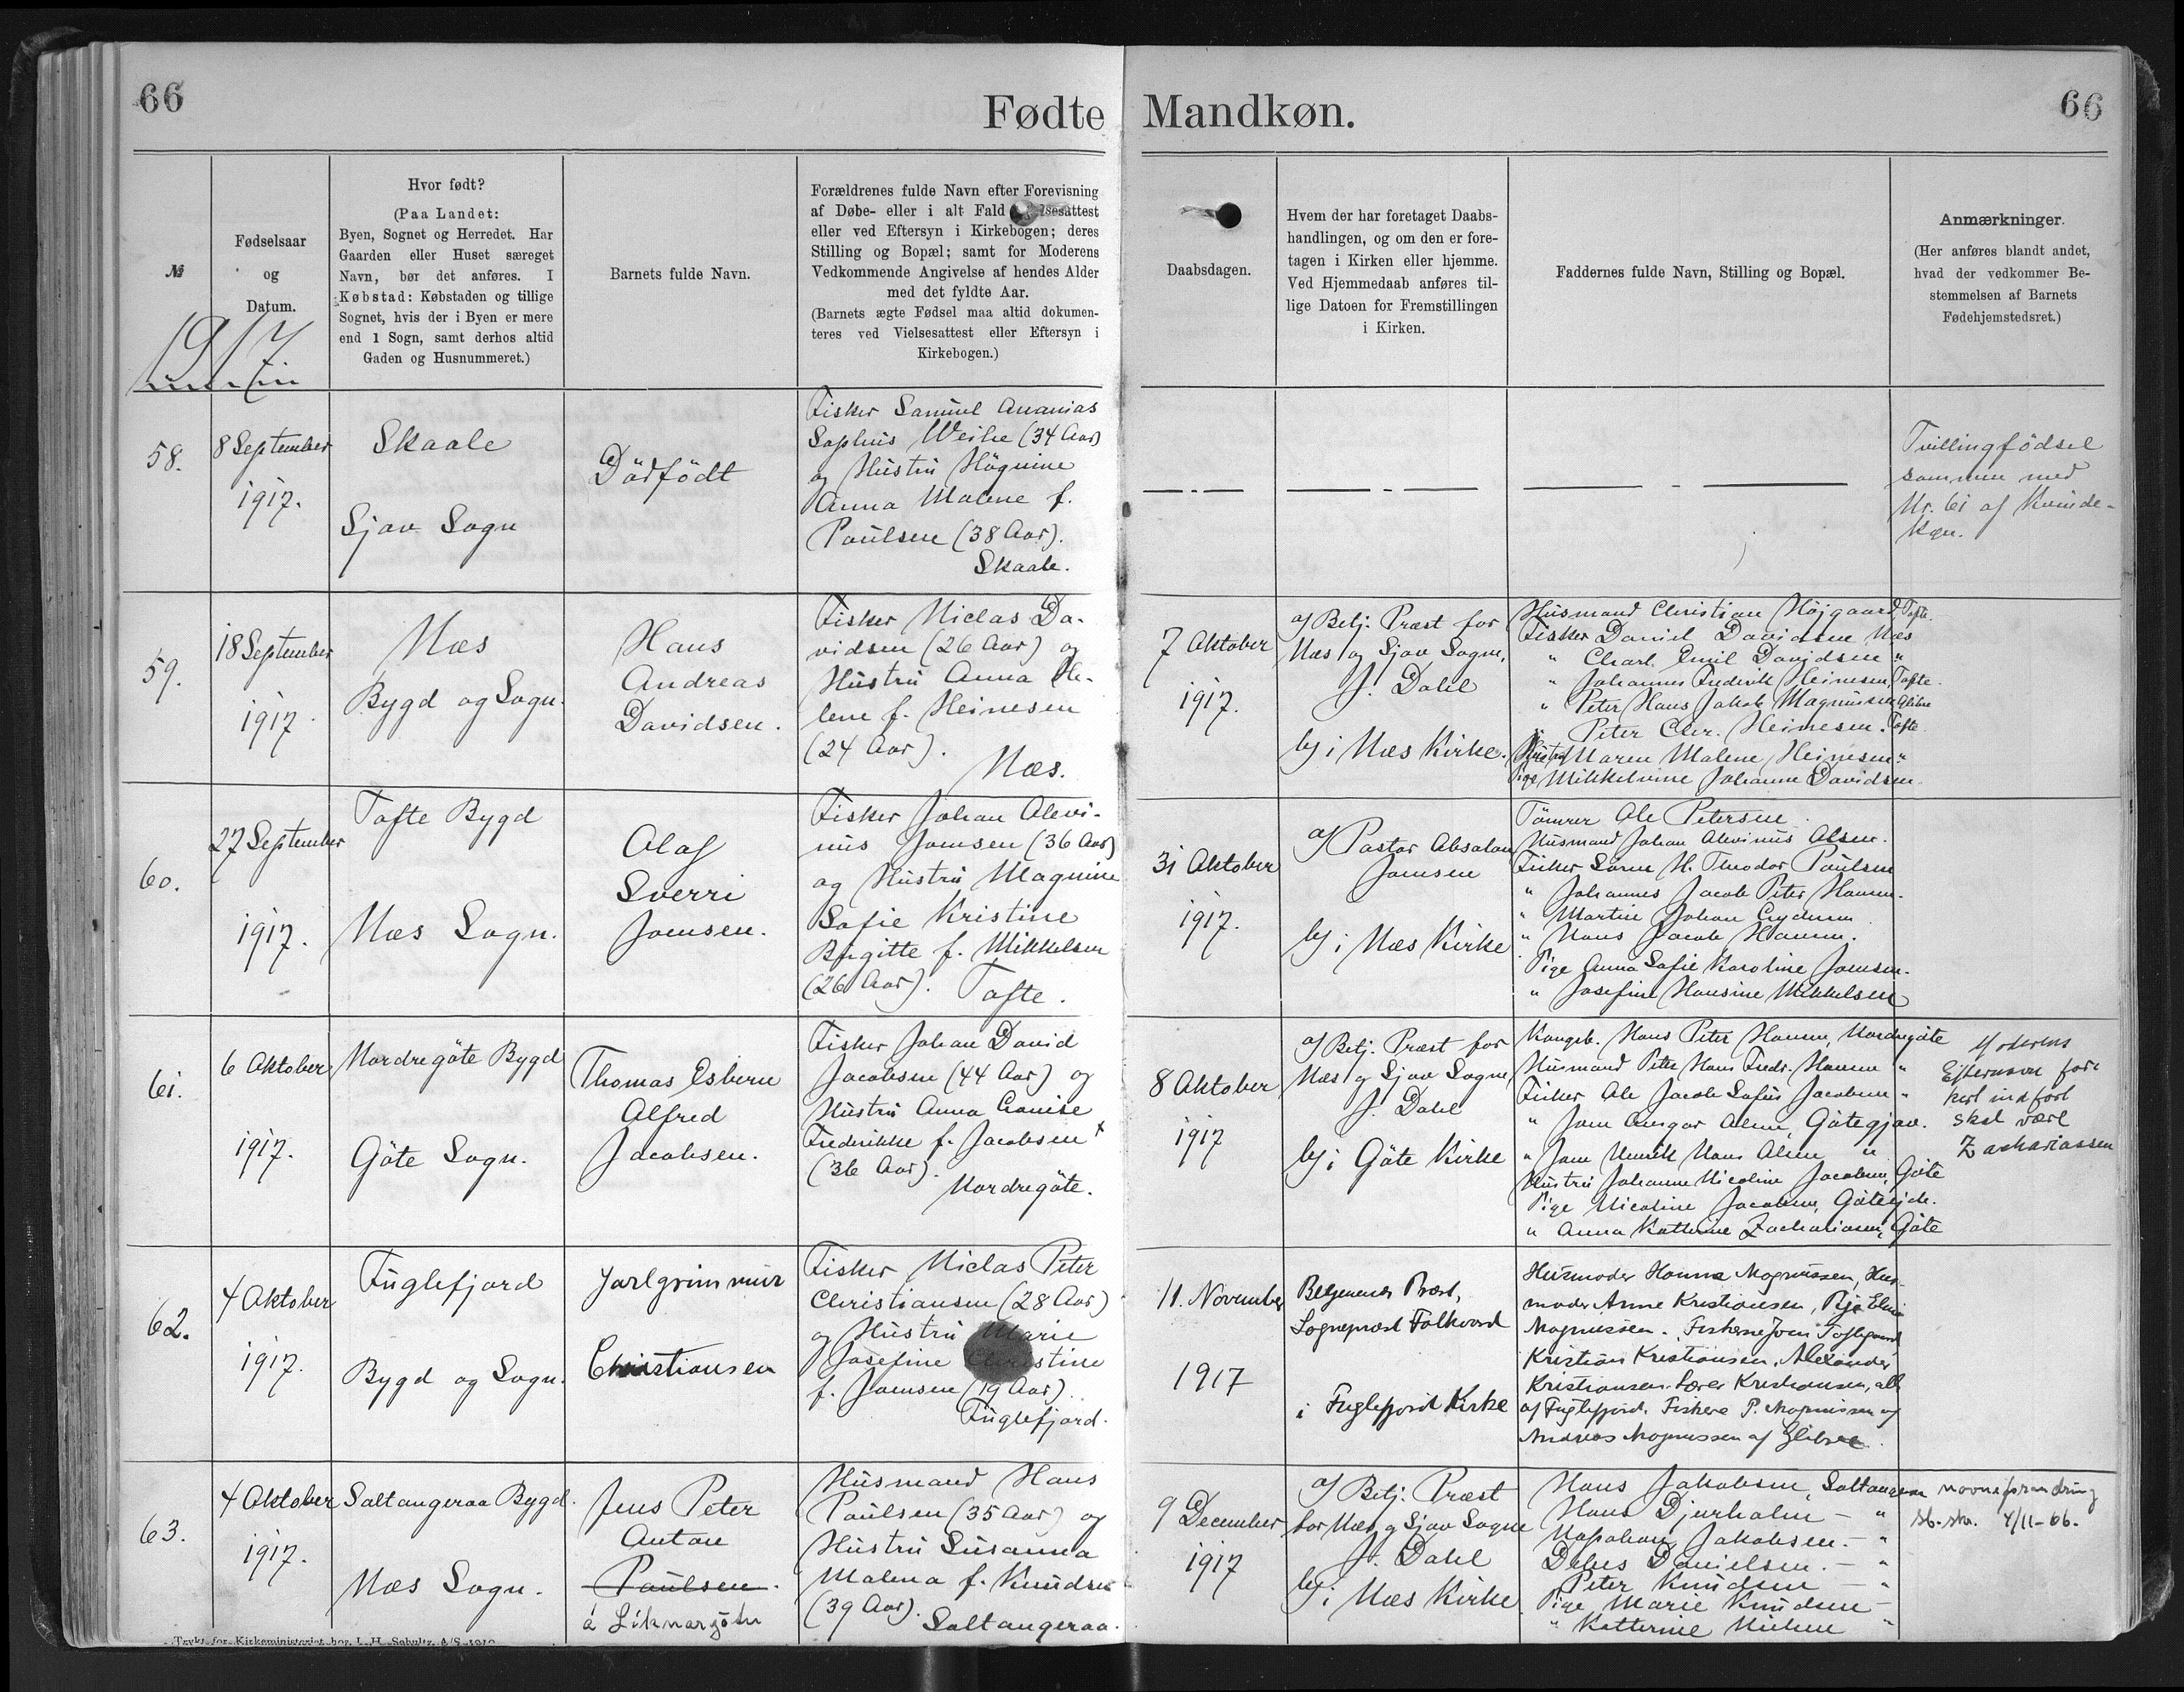 66
Fødte Mandkøn.
66
№
Fødselsaar
og
Datum.
Hvor født?
(Paa Landet:
Byen, Sognet og Herredet. Har
Gaarden eller Huset særeget
Navn, bør det anføres. I
Købstad: Købstaden og tillige
Sognet, hvis der i Byen er mere
end 1 Sogn, samt derhos altid
Gaden og Husnummeret.)
Barnets fulde Navn.
Forældrenes fulde Navn efter Forevisning
af Døbe- eller i alt Fald
eller ved Eftersyn i Kirkebogen; deres
Stilling og Bopæl; samt for Moderens
Vedkommende Angivelse af hendes Alder
med det fyldte Aar.
(Barnets ægte Fødsel maa altid dokumen-
teres ved Vielsesattest eller Eftersyn i
Kirkebogen.)
Daabsdagen.
Hvem der har foretaget Daabs-
handlingen, og om den er fore-
tagen i Kirken eller hjemme.
Ved Hjemmedaab anføres til-
lige Datoen for Fremstillingen
i Kirken.
Faddernes fulde Navn, Stilling og Bopæl.
Anmærkninger.
(Her anføres blandt andet,
hvad der vedkommer Be-
stemmelsen af Barnets
Fødehjemstedsret.)
1917.
58.
8 September
1917.
Skaale
Sjov Sogn
Dödfödt
Fisker Samuel Ananias
Sophus Weihe (34 Aar)
og Hustru Högnine
Anna Malene f.
Poulsen (38 Aar).
Skaale.
Tvillingfödsel
sammen med
Nr. 61 af Kvinde-
køn.
59.
18 September
1917.
Næs
Bygd og Sogn.
Hans
Andreas
Davidsen.
Fisker Niclas Da-
vidsen (26 Aar) og
Hustru Anna He-
lene f. Heinesen
(24 Aar).
Næs.
7 Oktober
1917.
af Betj. Præst for
Næs og Sjov Sogne,
J. Dahl
i Næs Kirke.
Husmand Christian Højgaard, Tofte.
Fisker Daniel Davidsen Næs
" Charl. Emil Davidsen "
" Johannes Frederik Heinesen, Tofte.
" Peter Hans Jakob Magnussen
" Peter Chr. Heinesen. Tofte
Hustru Maren Malene Heinesen "
Pige Mikkeline Johanne Davidsen
60.
27 September
1917.
Tofte Bygd
Næs Sogn.
Olaf
Sverri
Joensen.
Fisker Johan Olevi-
nus Joensen (36 Aar)
og Hustru Magnine
Sofie Kristine
Birgitte f. Mikkelsen
(26 Aar). Tofte.
31 Oktober
1917.
af Pastor Absalon
Joensen
i Næs Kirke
Tømrer Ole Petersen.
Husmand Johan Olevinus Olsen.
Fisker Sören H. Theodor Poulsen
" Johannes Jacob Peter Hansen.
" Martin Johan
" Hans Jacob Hansen.
Pige Anna Sofie Karoline Joensen.
" Josefine Hansine Mikkelsen
61.
6 Oktober
1917.
Nordregöte Bygd
Göte Sogn.
Thomas Esbern
Alfred
Jacobsen.
Fisker Johan David
Jacobsen (44 Aar) og
Hustru Anna Louise
Frederikke f. Jacobsen x
(36 Aar).
Nordregöte.
8 Oktober
1917
af Betj. Præst for
Næs og Sjov Sogne,
J. Dahl
i Göte Kirke
Kongsb. Hans Peter Hansen, Nordregöte
Husmand Peter Hans Fredr. Hansen "
Fisker Ole Jacob Sofus Jacobsen "
" Joen Ansgar Olsen, Götegjov.
" Joen Henrik Hans Olsen "
Hustru Johanne Nicoline Jacobsen, Göte
Pige Nicoline Jacobsen,
" Anna Kathrine Zachariasen, Göte
Moderens
Efternavn for-
kert indført
skal være
Zachariassen
62.
4 Oktober
1917.
Fuglefjord
Bygd og Sogn.
Jarlgrimmur
Christiansen
Fisker Niclas Peter
Christiansen (28 Aar)
og Hustru Marie
Josefine Christine
f. Joensen (19 Aar).
Fuglefjord.
11. November
1917
Betjenende Præst,
Sognepræst Falkvard
i Fuglefjord Kirke
Husmoder Hanna Magnussen, Hus-
moder Anne Kristiansen, Pige
Magnussen. Fiskerne Joen Toftegaard
Kristian Kristiansen, Alexander
Kristiansen. Lærer Kristiansen, alle
af Fuglefjord. Fiskere P. Magnussen og
Andreas Magnussen af Glibre.
63.
4 Oktober
1917.
Saltangeraa Bygd.
Næs Sogn.
Jens Peter
Anton
Poulsen.
á Líknargøtu
Husmand Hans
Poulsen (35 Aar) og
Hustru Susanna
Malena f. Knudsen
(39 Aar).
Saltangeraa.
9 December
1917
af Betj. Præst
for Næs og Sjov Sogne
J. Dahl
i Næs Kirke
Hans Jakobsen, Saltangeraa
Hans Djurholm — "
Napoleon Jakobsen. — "
Debes Danielsen. — "
Peter Knudsen — "
Pige Marie Knudsen —
" Katherine Nielsen "
navneforandring
4/11-66.